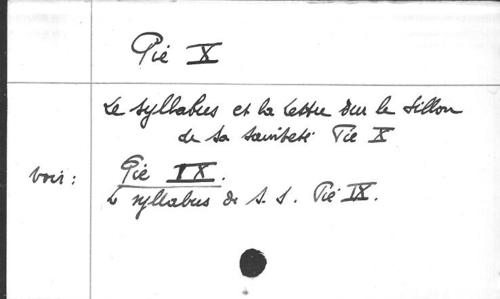 Pie X
Le syllabus et la lettre sur le sillon
de Sa Sainteté Pie X
voir : Pie IX.
Le syllabus de S. S. Pie IX.